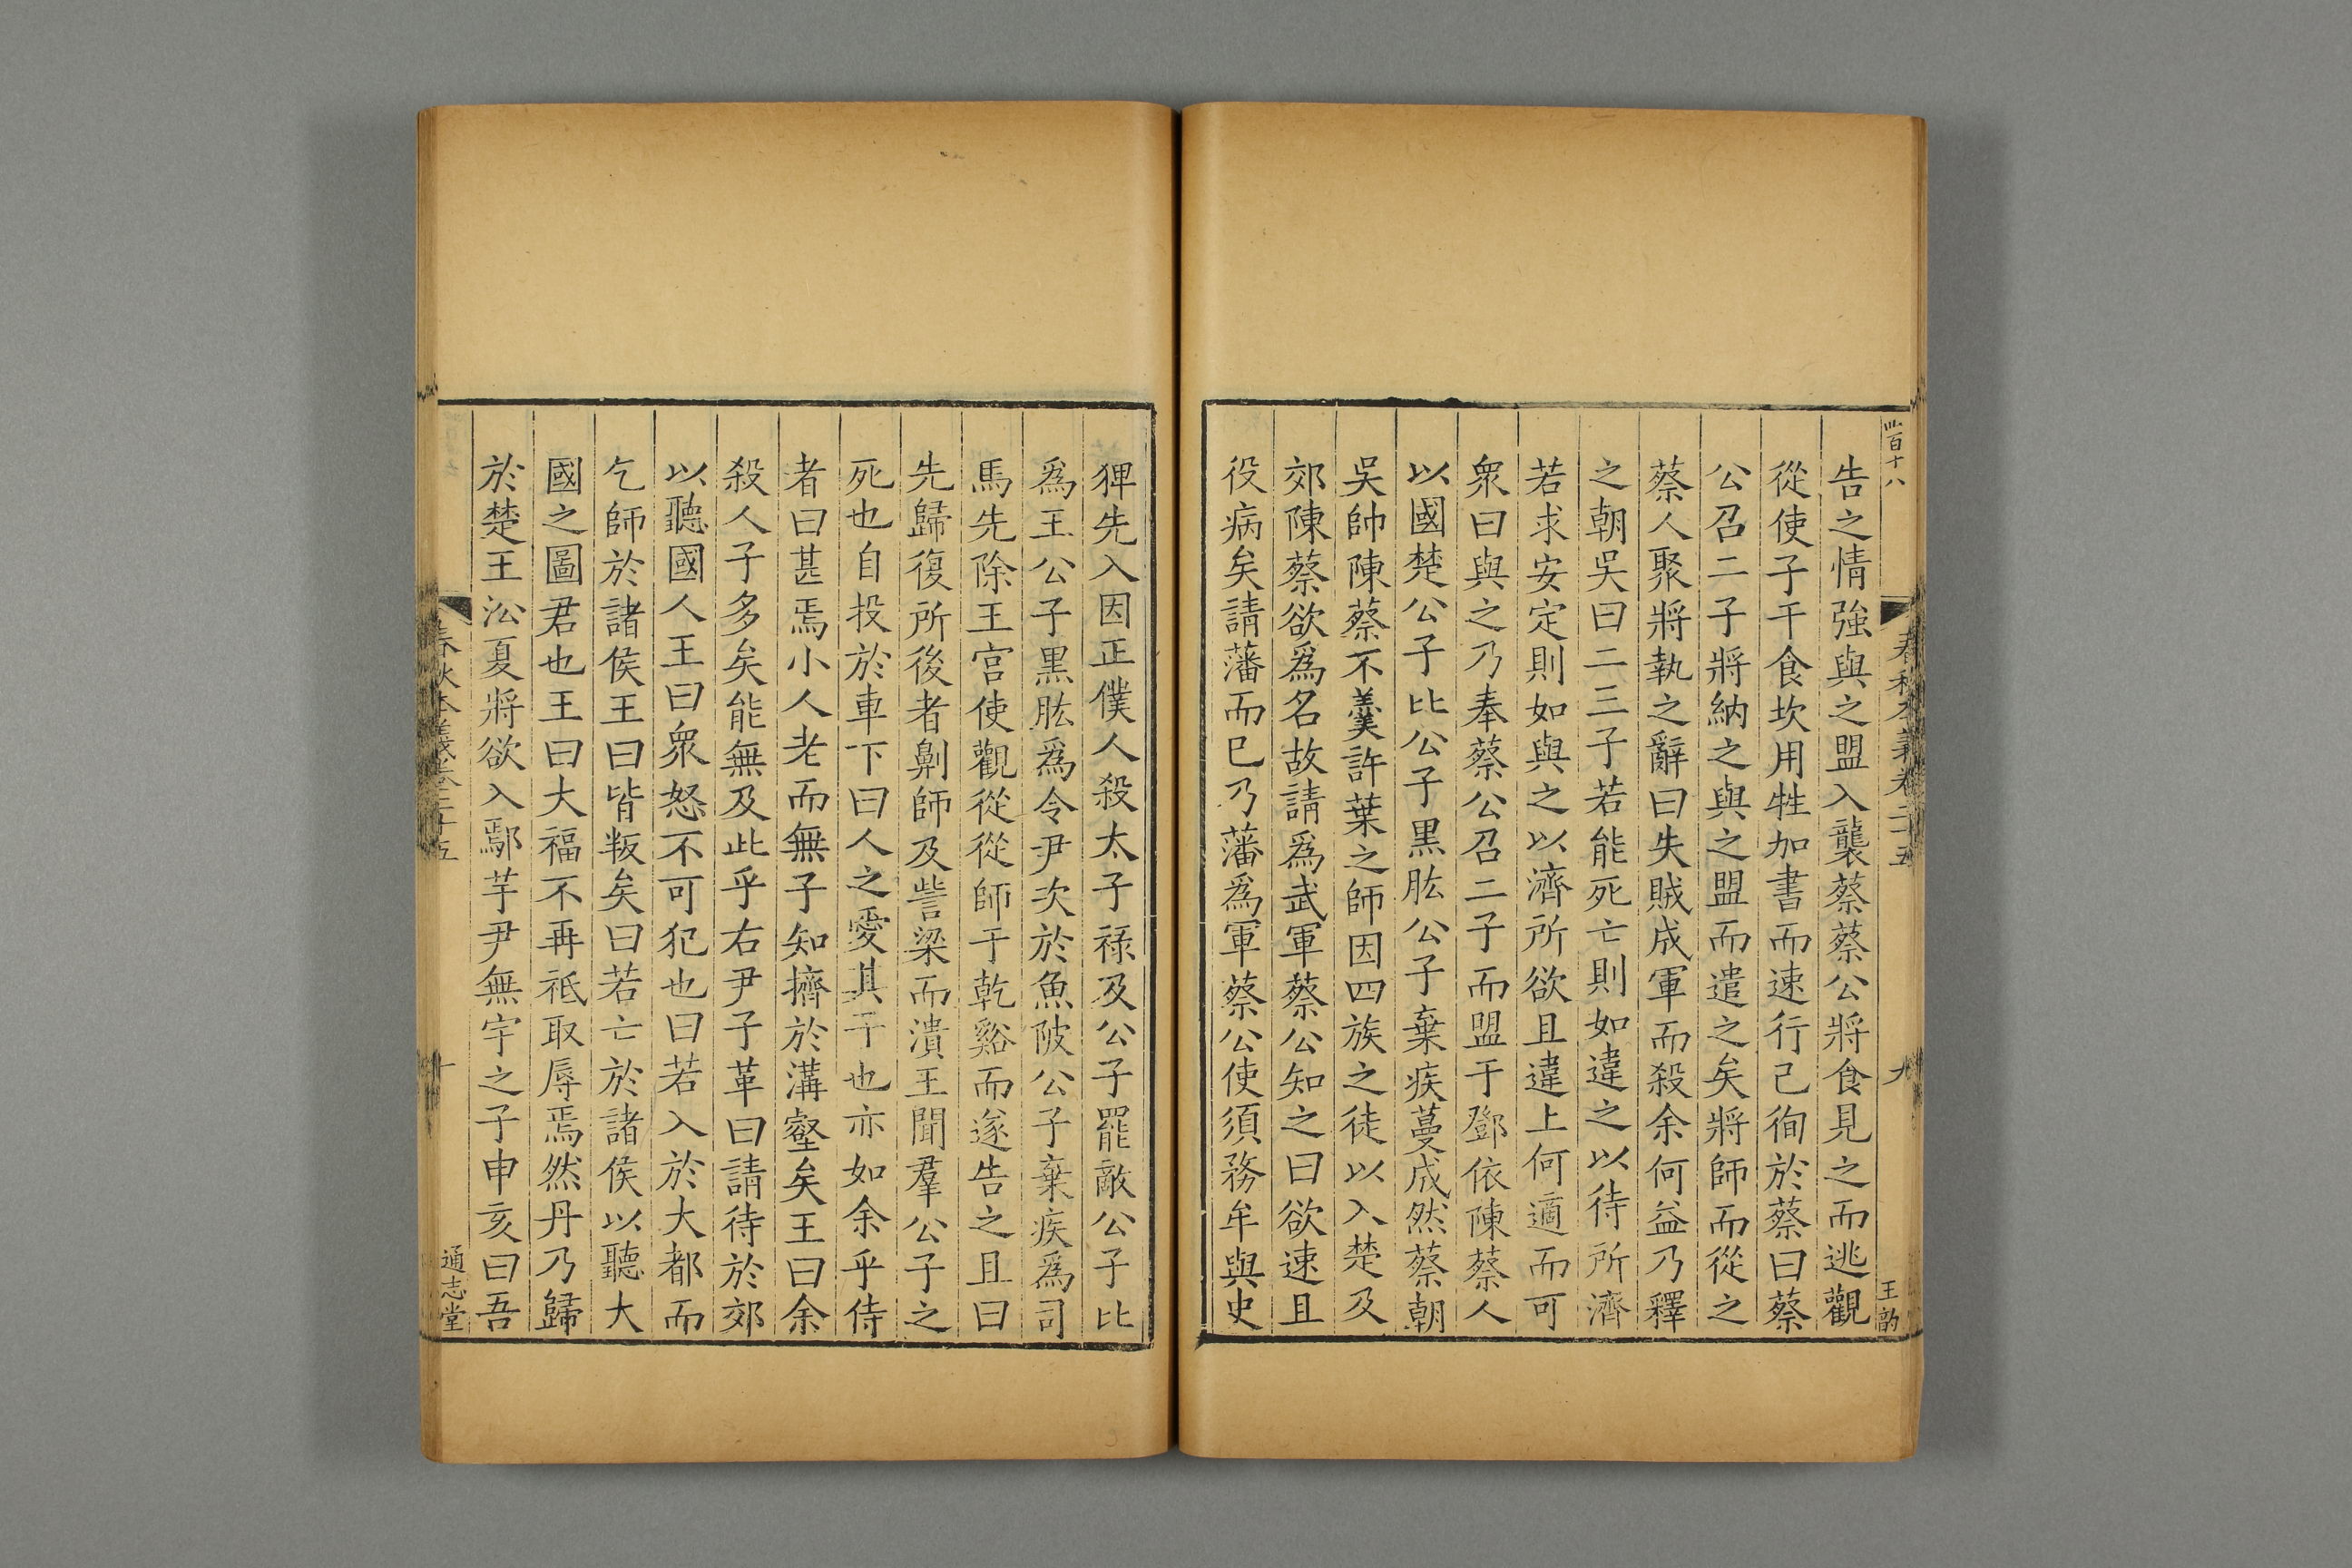 告之情強與之盟入襲蔡蔡公將食見之而逃觀
從使子干食坎用牲加書而速行己徇於蔡曰蔡
公召二子將納之與之盟而遣之矣將師而從之
蔡人聚將執之辭曰失賊成軍而殺余何益乃釋
之朝吳曰二三子若能死亡則如違之以待所濟
若求安定則如與之以濟所欲且違上何適而可
衆曰與之乃奉蔡公召二子而盟于鄧依陳蔡人
以國楚公子比公子黑肱公子棄疾蔓成然蔡朝
吳帥陳蔡不羹許葉之師因四族之徒以入楚及
郊陳蔡欲爲名故請爲武軍蔡公知之曰欲速且
役病矣請藩而已乃藩爲軍蔡公使須務牟與史
猈先入因正僕人殺太子祿及公子罷敵公子比
爲王公子黑肱爲令尹次於魚陂公子棄疾爲司
馬先除王宮使觀從從師于乾谿而遂告之且曰
先歸復所後者劓師及訾梁而潰王聞羣公子之
死也自投於車下曰人之愛其子也亦如余乎侍
者曰甚焉小人老而無子知擠於溝壑矣王曰余
殺人子多矣能無及此乎右尹子革曰請待於郊
以聽國人王曰衆怒不可犯也曰若入於大都而
乞師於諸侯王曰皆叛矣曰若亡於諸侯以聽大
國之圖君也王曰大福不再祇取辱焉然丹乃歸
於楚王沿夏將欲入鄢芋尹無宇之子申亥曰吾
春秋本義卷二十五
九
春秋本義卷二十五
十
通志堂